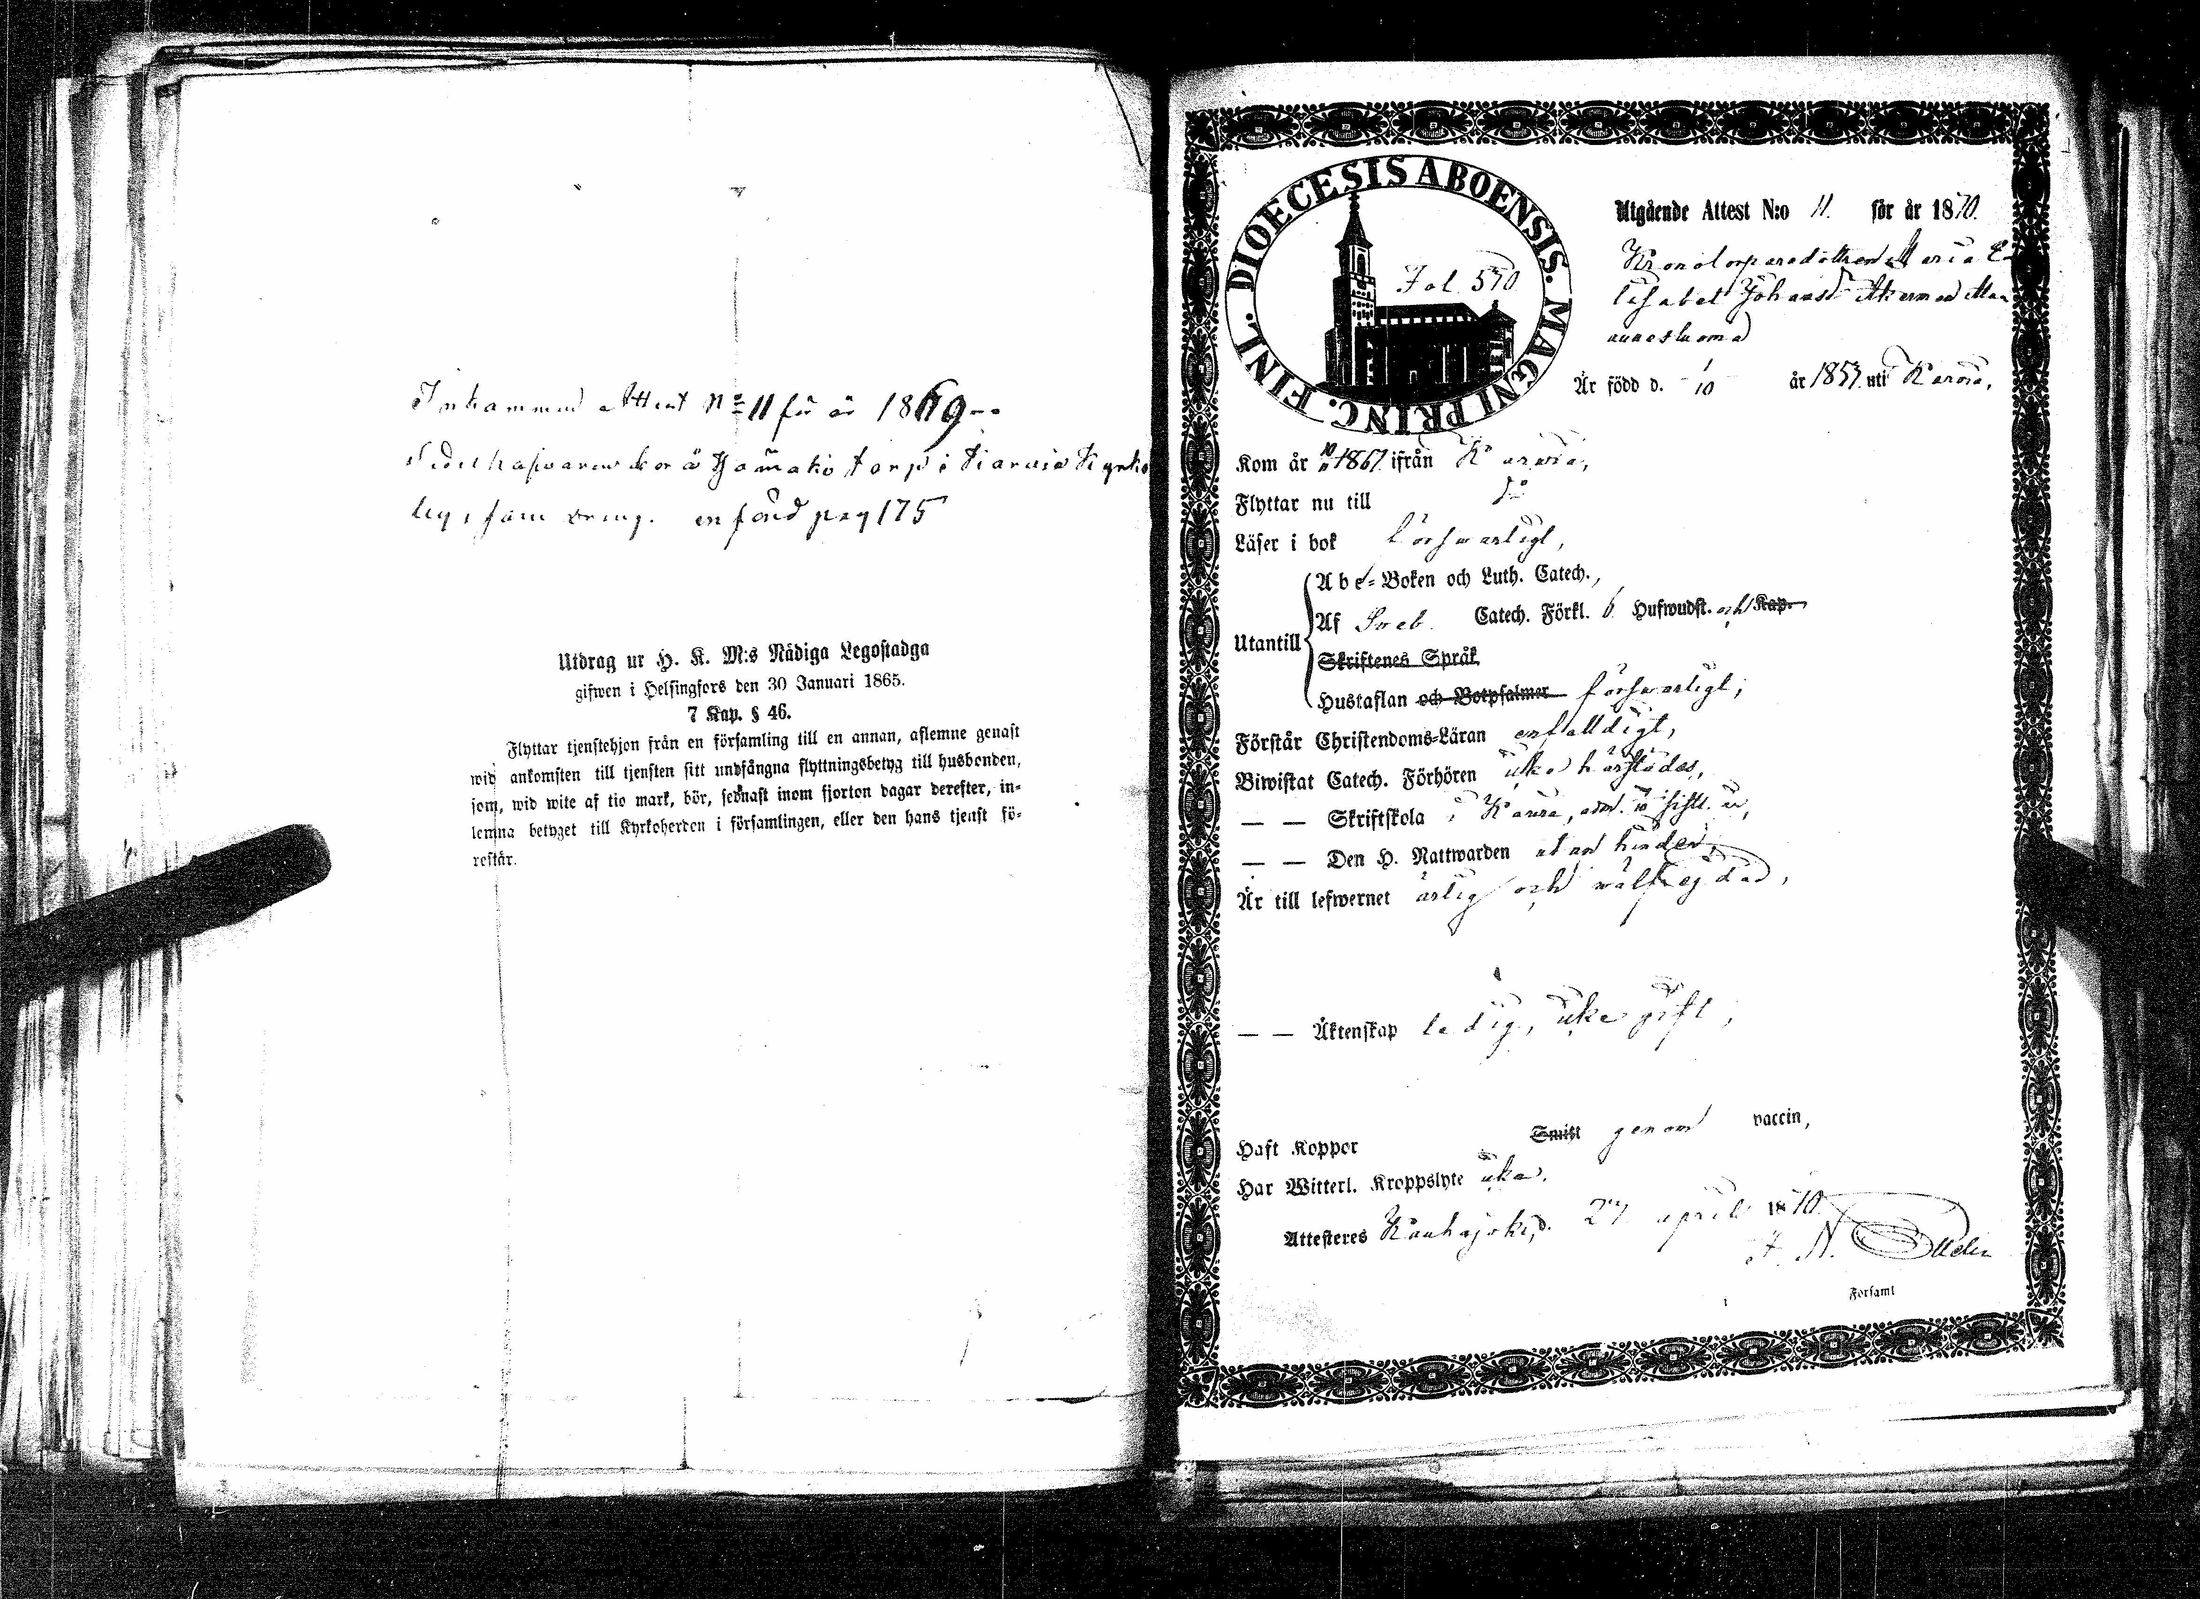 Inkommen Attest No 11 för år 1869
å Hamako torp i Karvia Kyrko
by, enförd pag 175
Utdrag ur H. K. M:s Nådiga Legostadga
gifwen i Helsingfors den 30 Januari 1865.
7 Kap. § 46.
Flyttar tjenstehjon från en församling till en annan, aflemne genast
wid ankomsten till tjensten sitt undfångna flyttningsbetyg till husbonden,
som, wid wite af tio mark, bör, sednast inom fjorton dagar derefter, in-
lemna betyget till Kyrkoherden i församlingen, eller den hans tjenst fö-
restår.
DIOECESIS ABOENSIS. MAGNI PRINC. FINL.
Fol. 570
Utgående Attest N:o 11. för år 1870.
Kronotorparedottren Maria E-
lisabet Johansd.
Är född d. 1/10 år 1853 uti Karvia,
Kom år 1867 ifrån Karvia,
Flyttar nu till do
Läser i bok försvarligt,
Utantill
Abc-Boken och Luth. Catech.,
Af Sveb. Catech. Förkl. 6 Hufwudst. och Kap.
Skriftenes Språk
Hustaflan och Botpsalmer försvarligt,
Förstår Christendoms-Läran enfalldigt,
Biwistat Catech. Förhören icke härstädes,
— — Skriftskola i Karvia, adm. sistl. år,
— — Den H. Nattwarden utan hinder,
Är till lefwernet ärlig och välfrejdad,
— — Äktenskap ledig, icke gift,
Haft Koppor Smitt genom vaccin,
Har Witterl. Kroppslyte icke.
Attesteres Kauhajoki, d. 27 april 1870.
J. N.
Församl